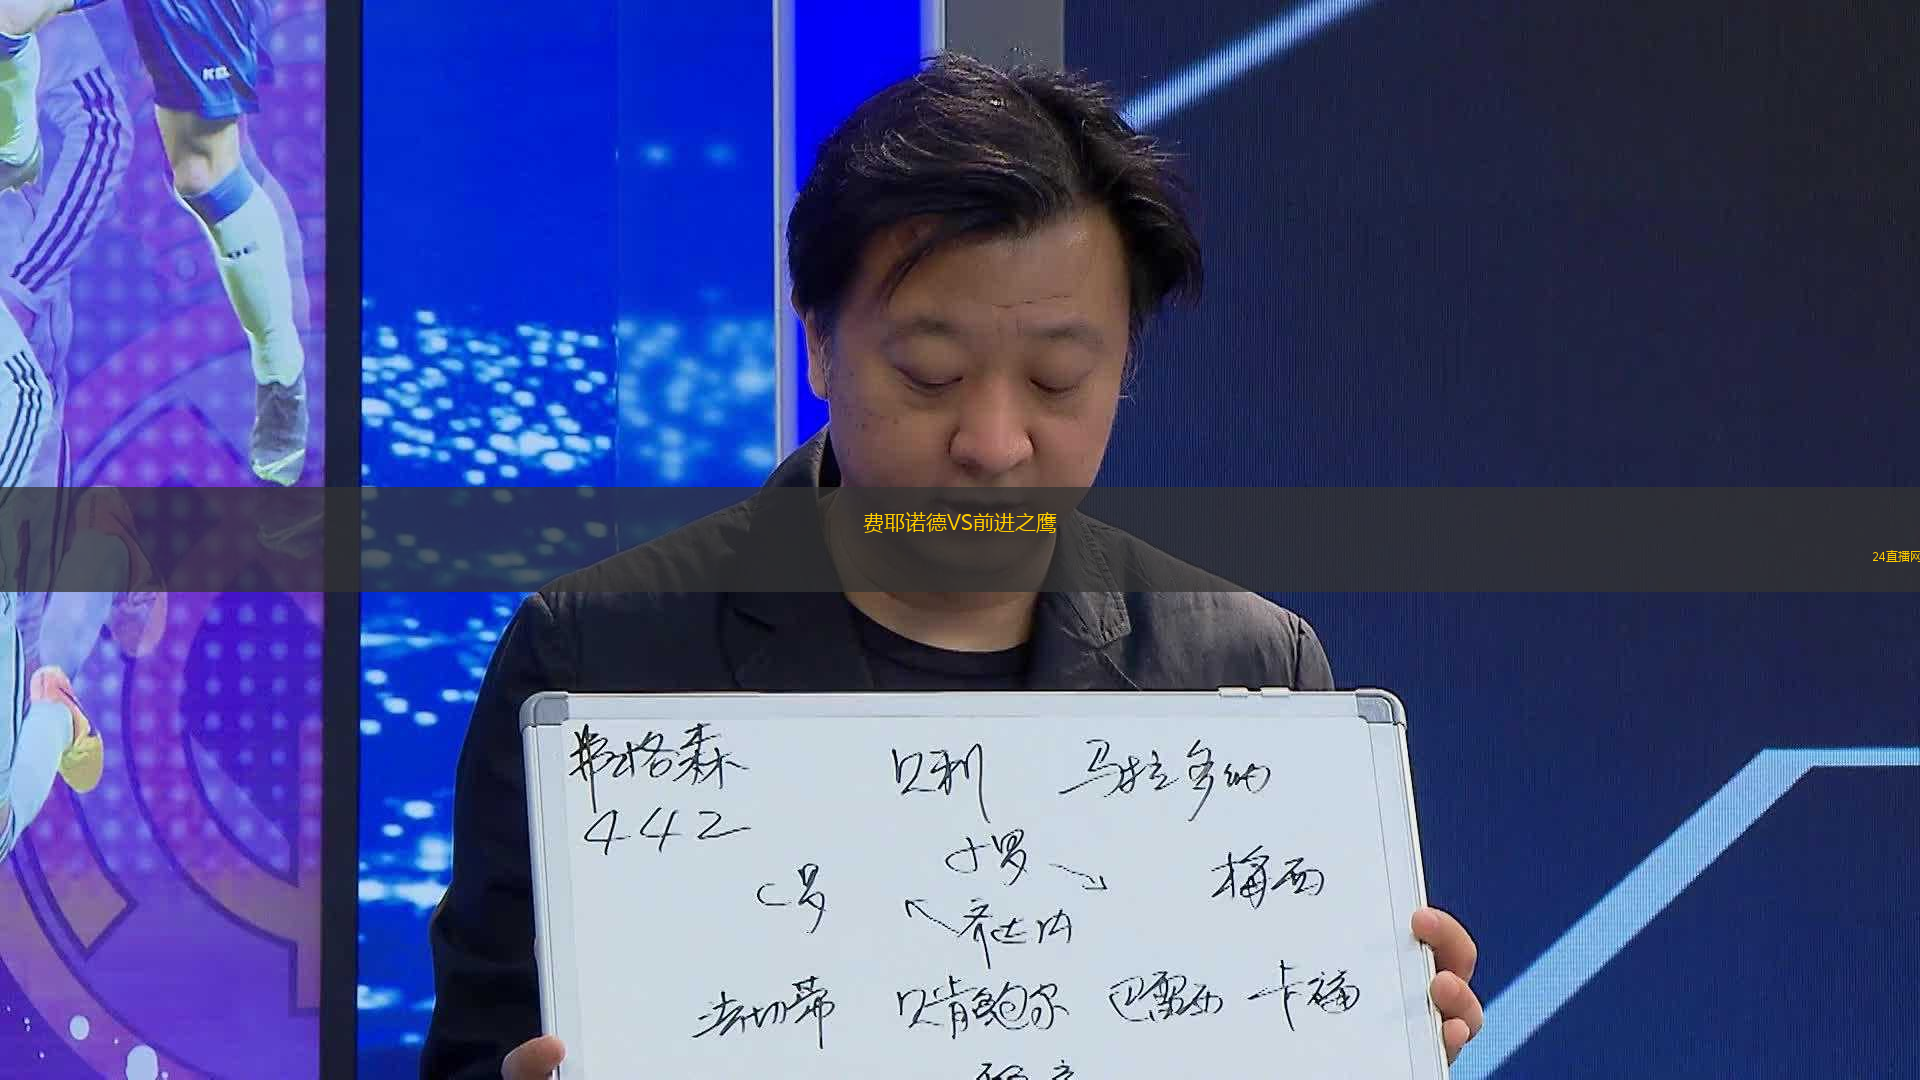 费耶诺德VS前进之鹰
24直播网
弗格森 贝利 马拉多纳
442
C罗 小罗 梅西
齐达内
法切蒂 贝肯鲍尔 巴雷西 卡福